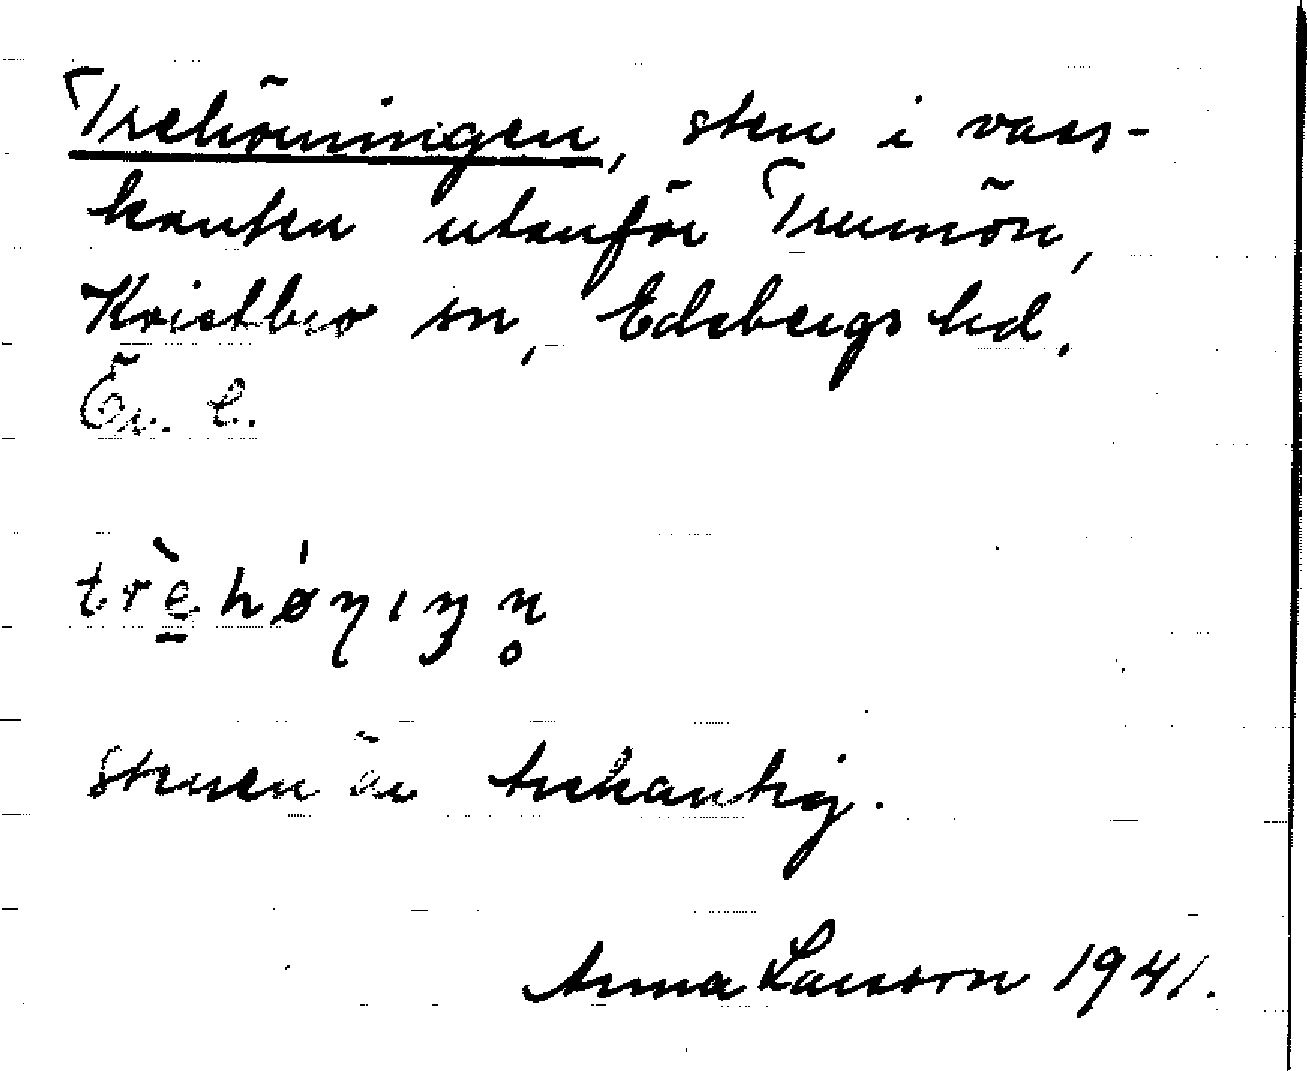 Trehörningen, sten i vass-
kanten utanför Trumön,
Kvistbro sn, Edsbergs hd.
Ör. l.
trèhǿɳıŋn̥
Stenen är trekantig.
Anna Larsson 1941.